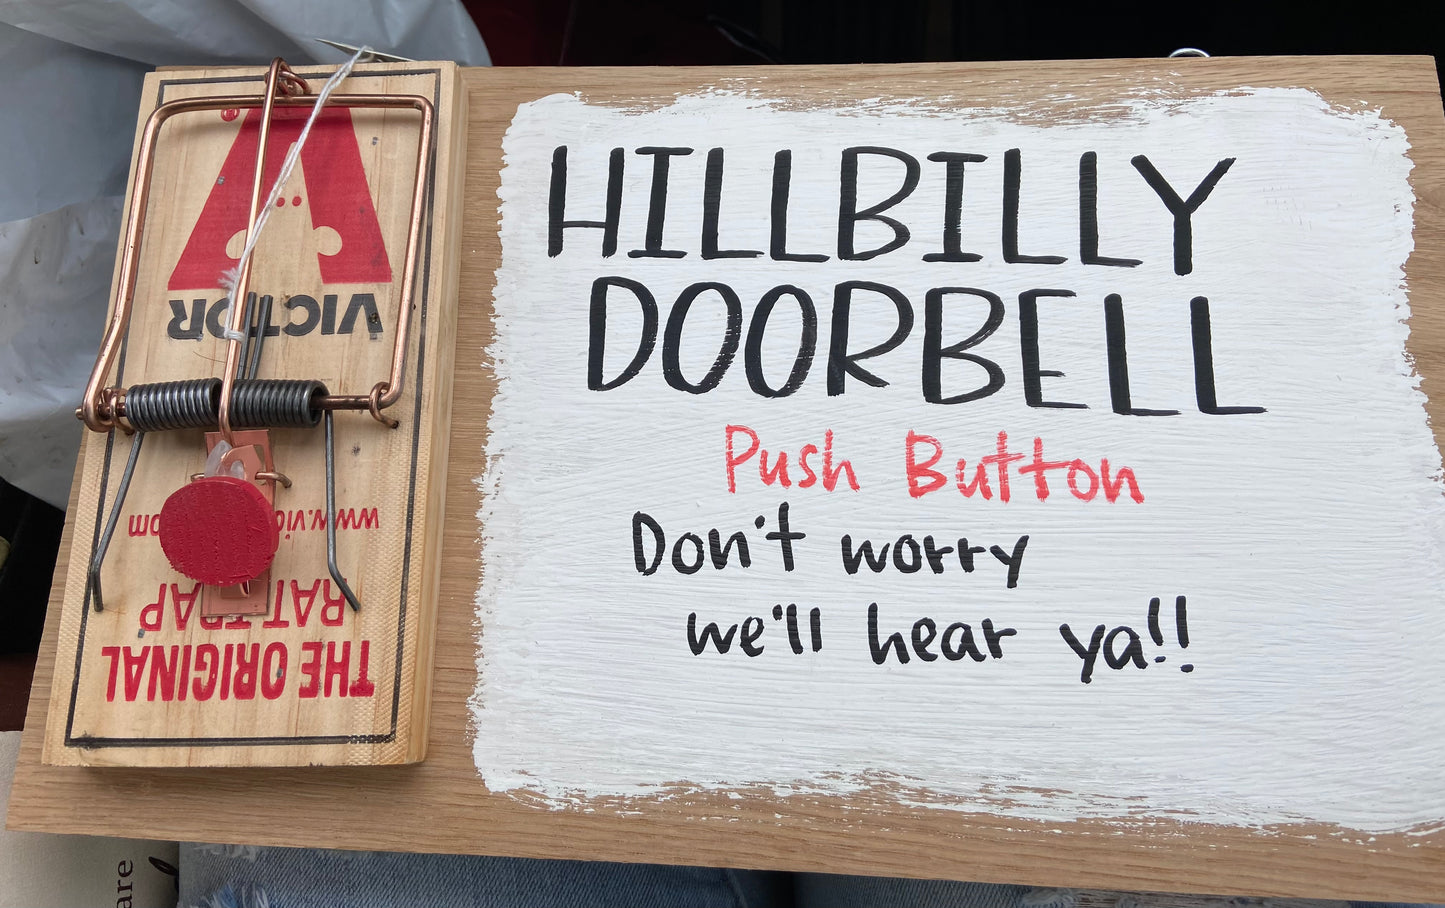 HILLBILLY
DOORBELL
Push Button
Don't worry
we'll hear ya!!
VICTOR
THE ORIGINAL
RAT TRAP
are